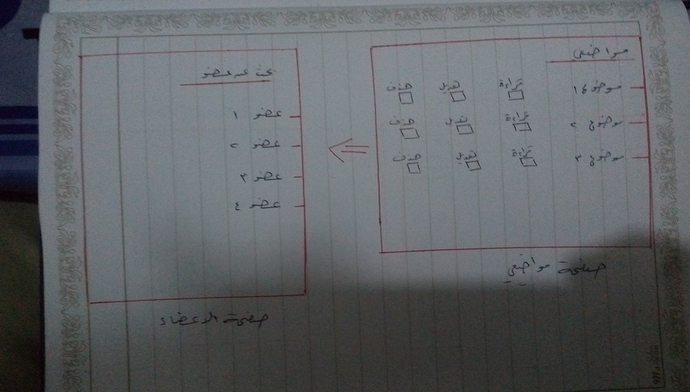 مواضيعي
موضوع ١ قراءة تعديل حذف
موضوع ٢ قراءة تعديل حذف
موضوع ٣ قراءة تعديل حذف
صفحة مواضيعي
بحث عن عضو
عضو ١
عضو ٢
عضو ٣
عضو ٤
صفحة الاعضاء